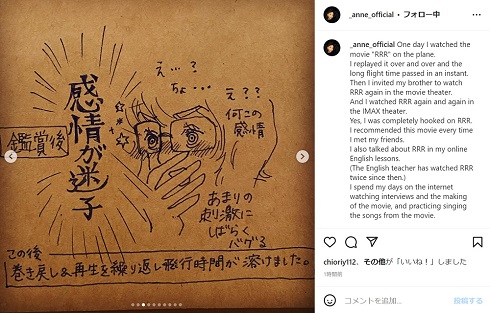 _anne_official • フォロー中
_anne_official One day I watched the
movie "RRR" on the plane.
I replayed it over and over and the
long flight time passed in an instant.
Then I invited my brother to watch
RRR again in the movie theater.
And I watched RRR again and again in
the IMAX theater.
Yes, I was completely hooked on RRR.
I recommended this movie every time
I met my friends.
I also talked about RRR in my online
English lessons.
(The English teacher has watched RRR
twice since then.)
I spend my days on the internet
watching interviews and the making
of the movie, and practicing singing
the songs from the movie.
chioriy112、その他が「いいね！」しました
1時間前
コメントを追加...
投稿する
鑑賞後
感情が迷子
えッ…？
ちょ…
え？？
何この
感情
あまりの
刺激に
しばらく
バグる
この後
巻き戻し&再生を繰り返し飛行時間が溶けました。